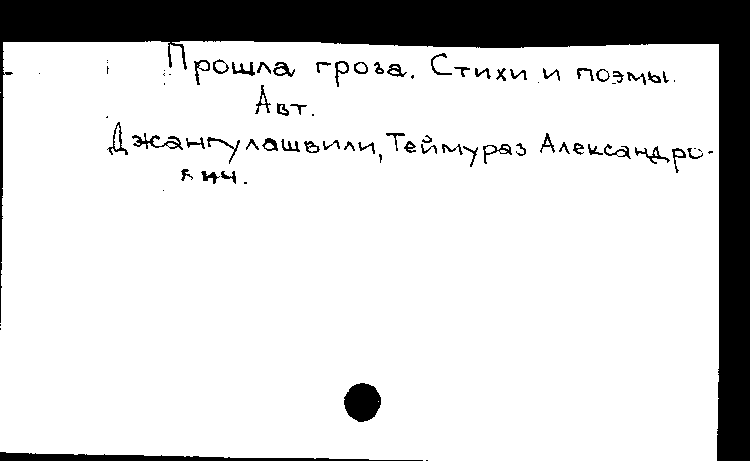 Прошла гроза. Стихи и поэмы.
Авт.
Джангулашвили, Теймураз Александро-
вич.